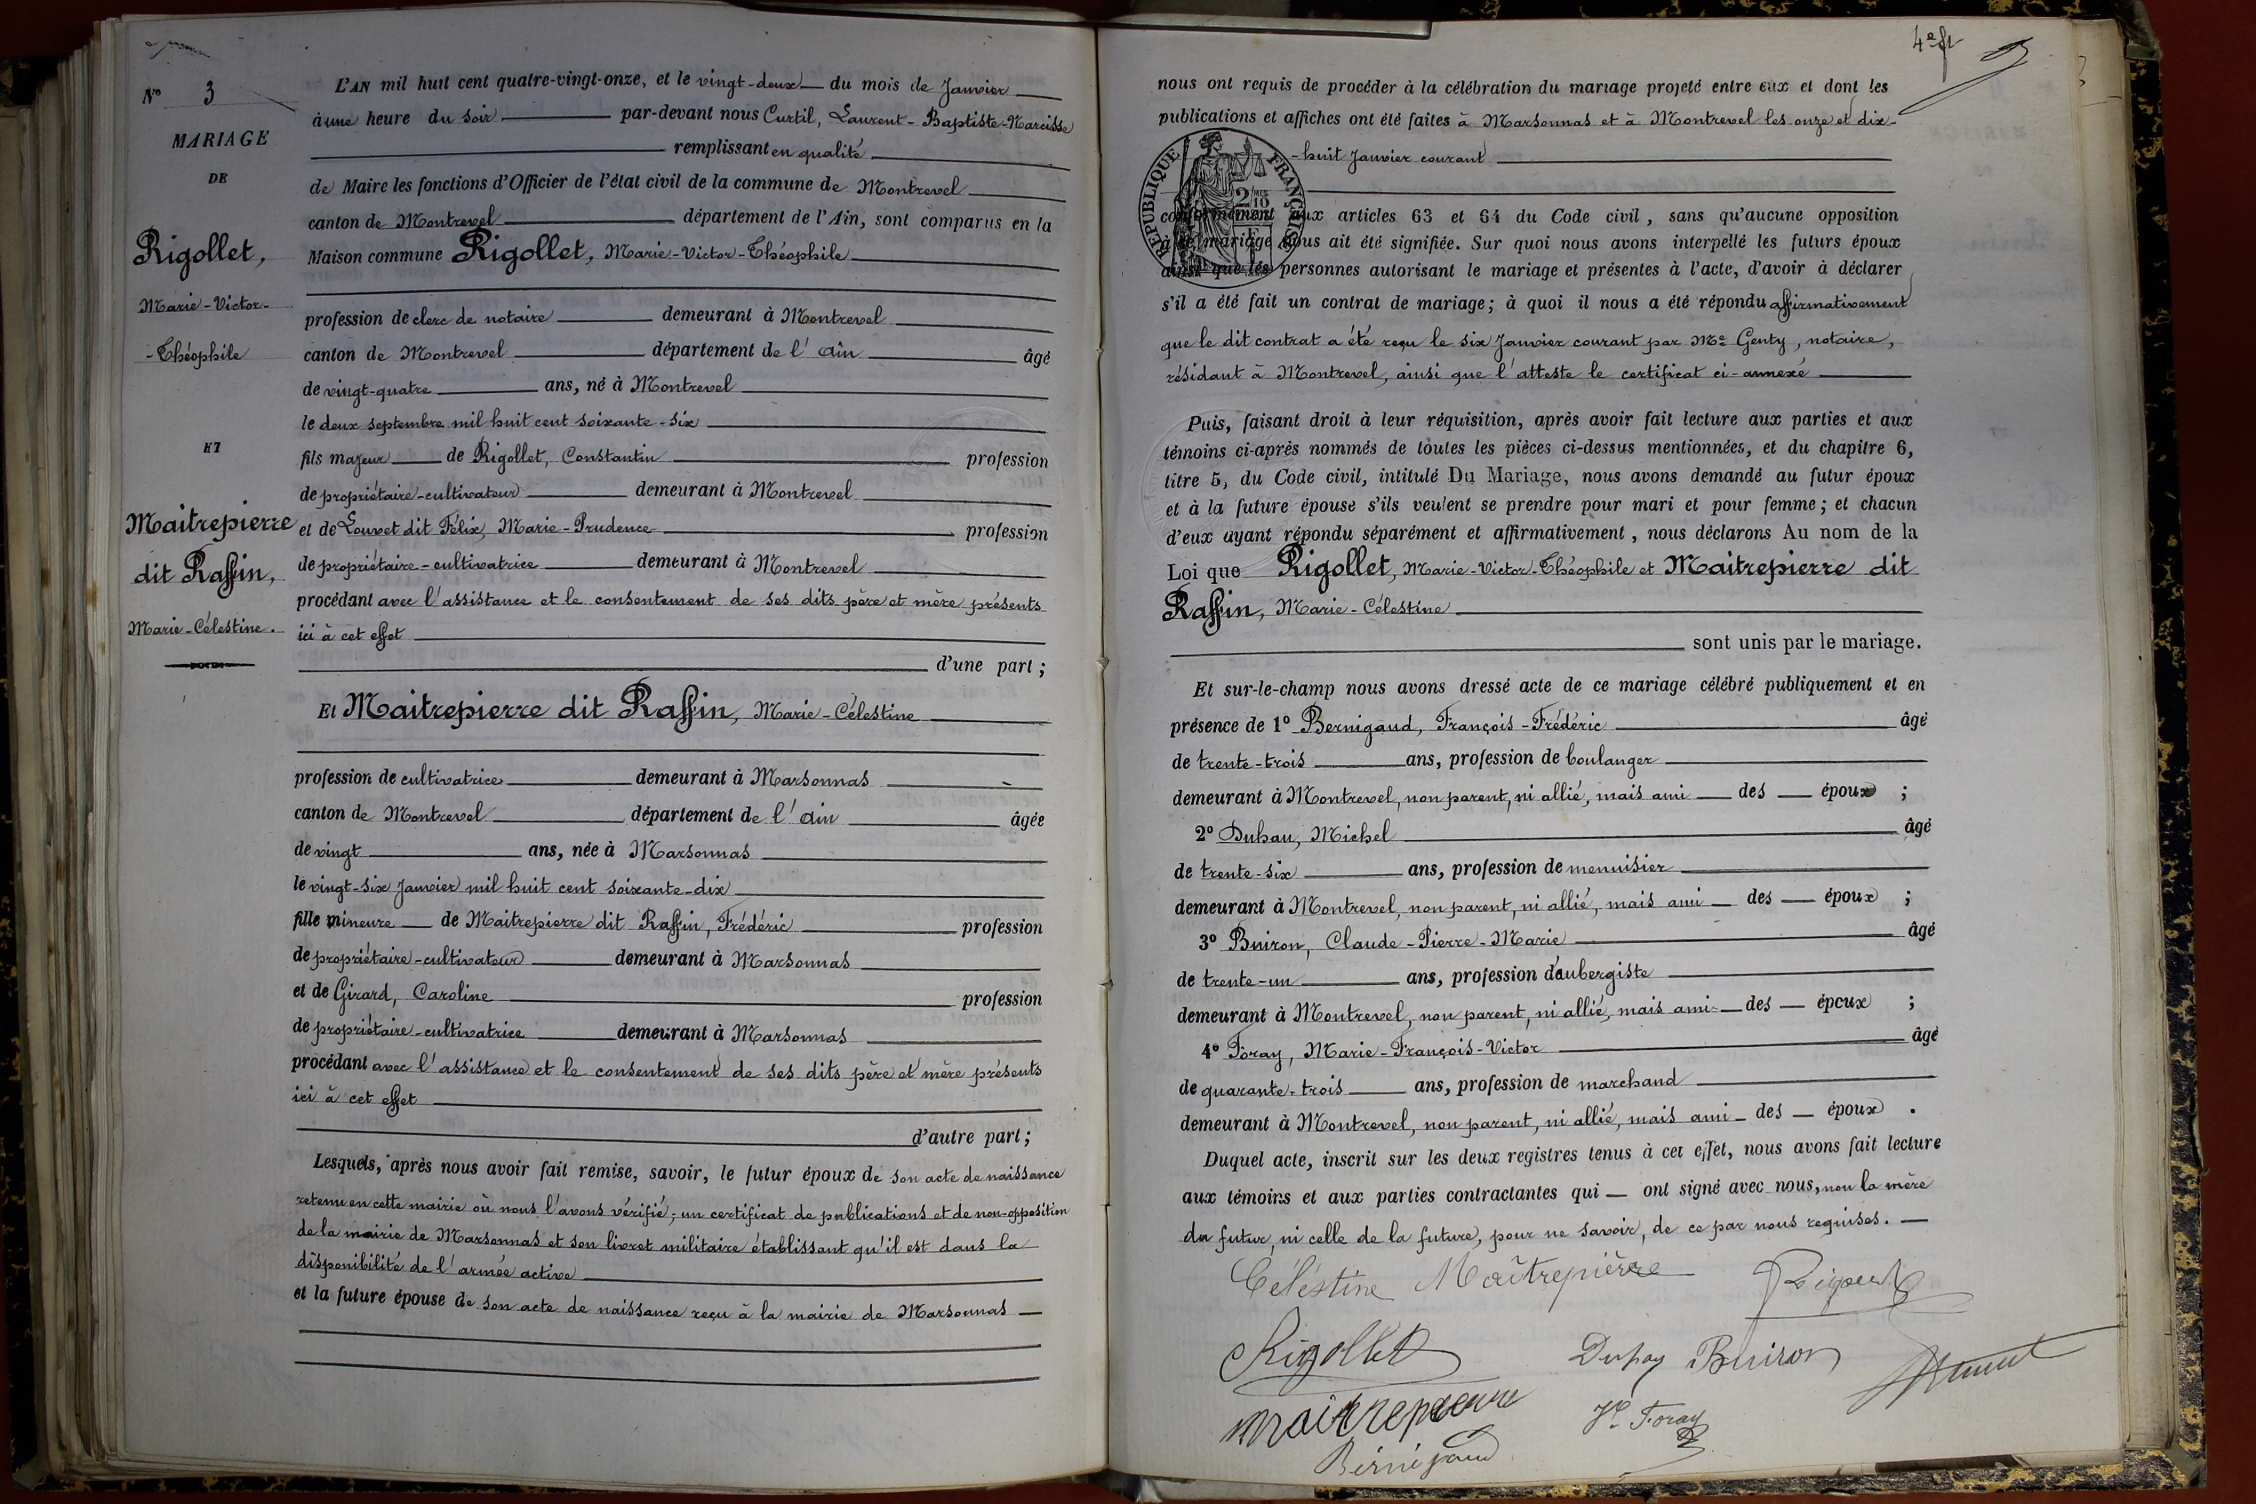 4e ft
No 3
MARIAGE
DE
Rigollet,
Marie-Victor-
-Théophile
ET
Maitrepierre
dit Raffin,
Marie-Célestine.
L'AN mil huit cent quatre-vingt-onze, et le vingt-deux du mois de Janvier
à une heure du soir par-devant nous Curtil, Laurent-Baptiste-Narcisse
remplissant en qualité
de Maire les fonctions d'Officier de l'état civil de la commune de Montrevel
canton de Montrevel département de l'Ain, sont comparus en la
Maison commune Rigollet, Marie-Victor-Théophile
profession de clerc de notaire demeurant à Montrevel
canton de Montrevel département de l'Ain âgé
de vingt-quatre ans, né à Montrevel
le deux septembre mil huit cent soixante-six
fils majeur de Rigollet, Constantin profession
de propriétaire-cultivateur demeurant à Montrevel
et de Louvet dit Félix, Marie-Prudence profession
de propriétaire-cultivatrice demeurant à Montrevel
procédant avec l'assistance et le consentement de ses dits père et mère présents
ici à cet effet
d'une part ;
Et Maitrepierre dit Raffin, Marie-Célestine
profession de cultivatrice demeurant à Marsonnas
canton de Montrevel département de l'Ain âgée
de vingt ans, née à Marsonnas
le vingt-six Janvier mil huit cent soixante-dix
fille mineure de Maitrepierre dit Raffin, Frédéric profession
de propriétaire-cultivateur demeurant à Marsonnas
et de Girard, Caroline profession
de propriétaire-cultivatrice demeurant à Marsonnas
procédant avec l'assistance et le consentement de ses dits père et mère présents
ici à cet effet
d'autre part ;
Lesquels, après nous avoir fait remise, savoir, le futur époux de son acte de naissance
retenu en cette mairie où nous l'avons vérifié ; un certificat de publications et de non-opposition
de la mairie de Marsonnas et son livret militaire établissant qu'il est dans la
disponibilité de l'armée active
et la future épouse de son acte de naissance reçu à la mairie de Marsonnas
nous ont requis de procéder à la célébration du mariage projeté entre eux et dont les
publications et affiches ont été faites à Marsonnas et à Montrevel les onze et dix-
-huit Janvier courant
RÉPUBLIQUE FRANÇAISE
2/10
conformément aux articles 63 et 64 du Code civil, sans qu'aucune opposition
à ce mariage nous ait été signifiée. Sur quoi nous avons interpellé les futurs époux
ainsi que les personnes autorisant le mariage et présentes à l'acte, d'avoir à déclarer
s'il a été fait un contrat de mariage ; à quoi il nous a été répondu affirmativement
que le dit contrat a été reçu le six Janvier courant par Me Genty, notaire,
résidant à Montrevel, ainsi que l'atteste le certificat ci-annexé
Puis, faisant droit à leur réquisition, après avoir fait lecture aux parties et aux
témoins ci-après nommés de toutes les pièces ci-dessus mentionnées, et du chapitre 6,
titre 5, du Code civil, intitulé Du Mariage, nous avons demandé au futur époux
et à la future épouse s'ils veulent se prendre pour mari et pour femme ; et chacun
d'eux ayant répondu séparément et affirmativement, nous déclarons Au nom de la
Loi que Rigollet, Marie-Victor-Théophile et Maitrepierre dit
Raffin, Marie-Célestine
sont unis par le mariage.
Et sur-le-champ nous avons dressé acte de ce mariage célébré publiquement et en
présence de 1º Bernigaud, François-Frédéric âgé
de trente-trois ans, profession de boulanger
demeurant à Montrevel, non parent, ni allié, mais ami des époux ;
2º Duhau, Michel âgé
de trente-six ans, profession de menuisier
demeurant à Montrevel, non parent, ni allié, mais ami des époux ;
3º Buiron, Claude-Pierre-Marie âgé
de trente-un ans, profession d'aubergiste
demeurant à Montrevel, non parent, ni allié, mais ami des époux ;
4º Foray, Marie-François-Victor âgé
de quarante-trois ans, profession de marchand
demeurant à Montrevel, non parent, ni allié, mais ami des époux .
Duquel acte, inscrit sur les deux registres tenus à cet effet, nous avons fait lecture
aux témoins et aux parties contractantes qui ont signé avec nous, non la mère
du futur, ni celle de la future, pour ne savoir, de ce par nous requises.
Céléstine Maîtrepièrre
Rigollet
Buiron
maitrepierre
Foray
Bernigaud